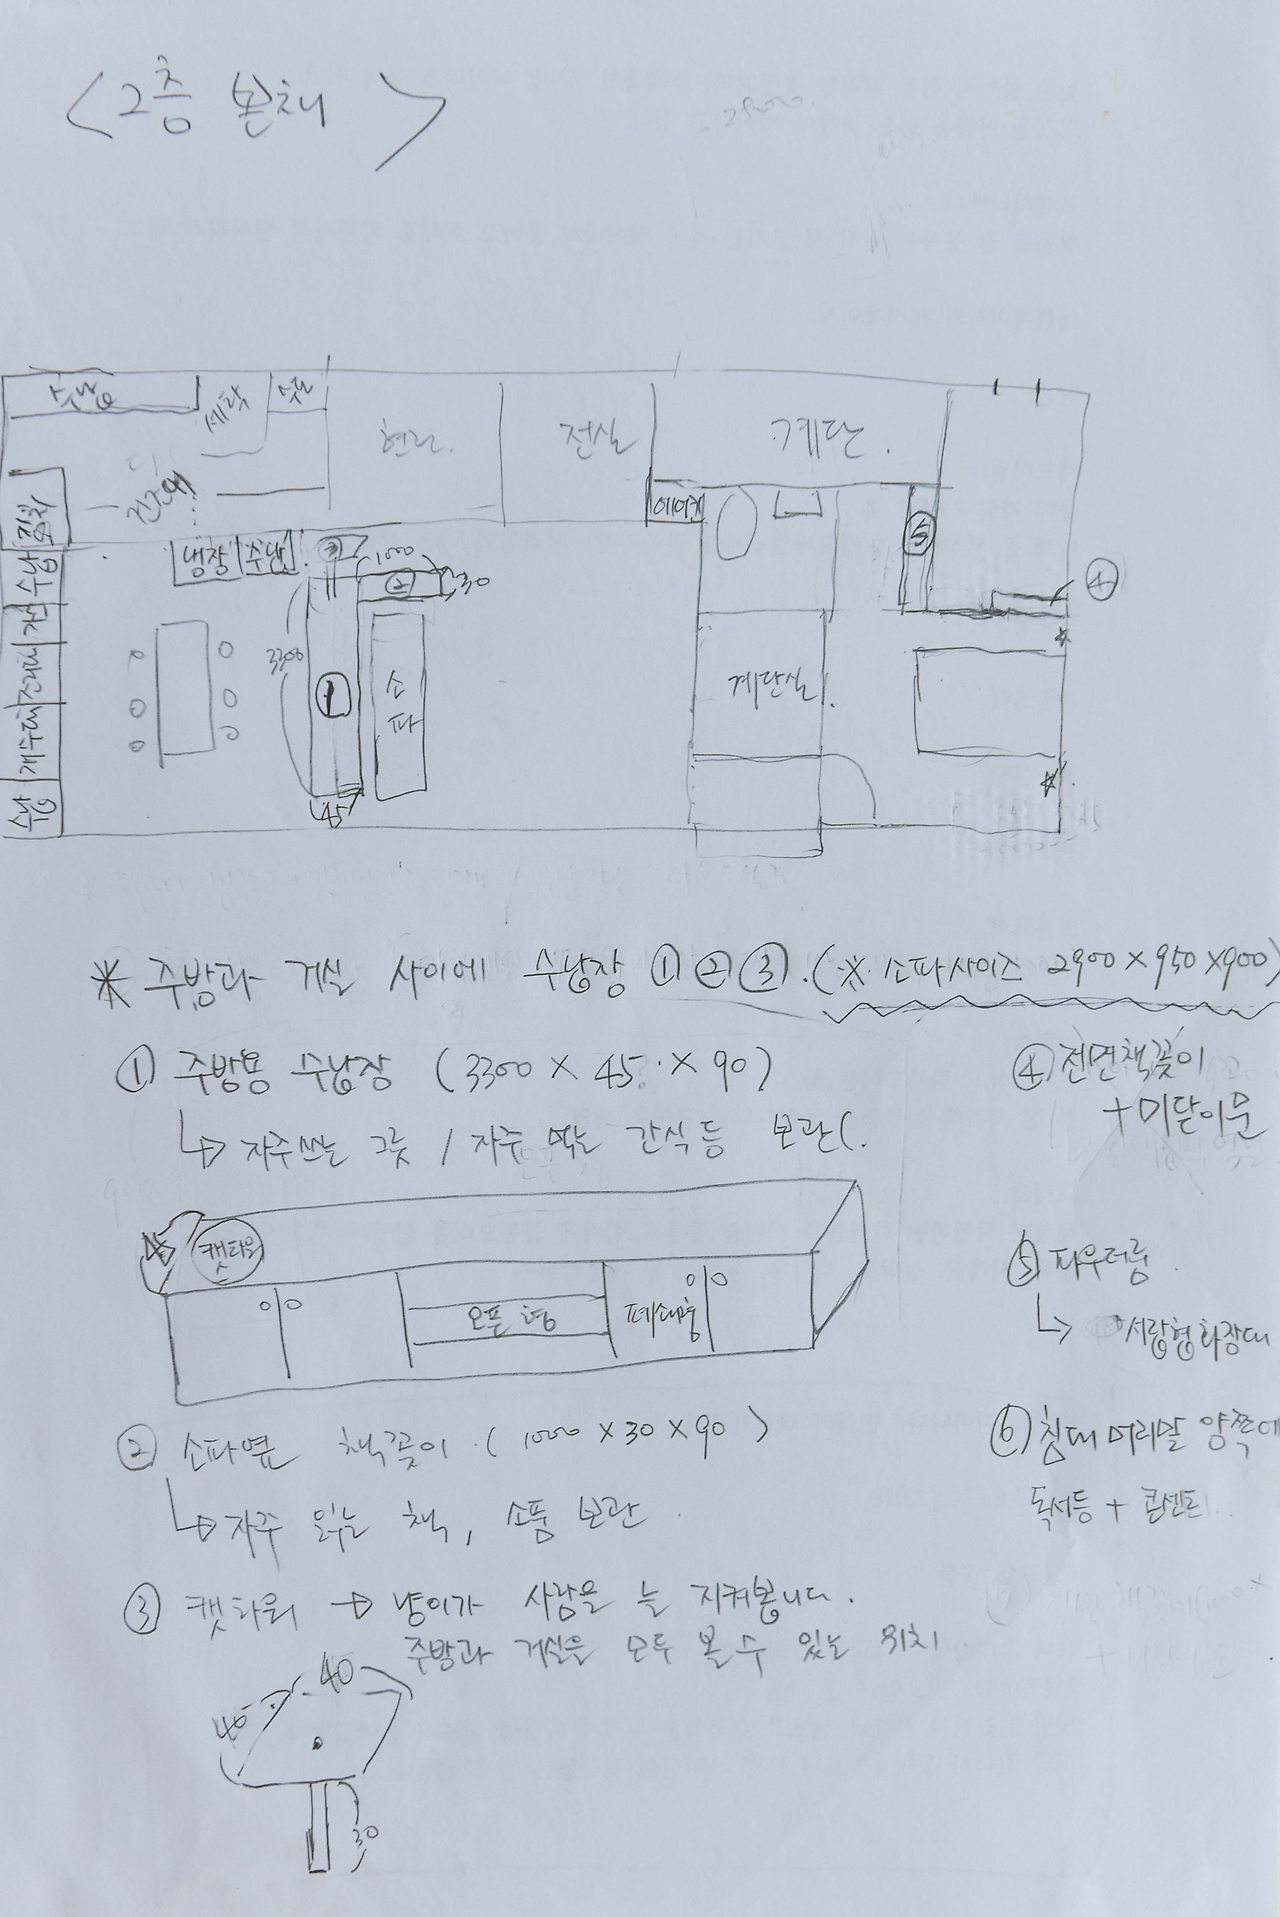 <2층 본채 >
수납
세탁
수납
현관.
전실
계단
김치
건조대
에어컨
냉장
수납
③
1000
②
30
⑤
④
수납
3300
①
소
파
계단실.
개수대
수납
45
※ 주방과 거실 사이에 수납장 ①②③.(※. 소파사이즈 2900×950×900)
① 주방용 수납장 (3300 × 45. × 90)
↳ 자주쓰는 그릇 / 자주 먹는 간식등 보관(.
④ 전면책꽂이
+ 미닫이문
캣타워
오픈형
폐쇄형
⑤ 파우더룸.
↳ 서랍형화장대
② 소파옆 책꽂이.(1000×30×90)
↳ 자주 읽는 책, 소품 보관.
⑥ 침대 머리맡 양쪽에
독서등 + 콘센트.
③ 캣타워 → 냥이가 사람을 늘 지켜봅니다.
주방과 거실을 모두 볼 수 있는 위치
40
40
30